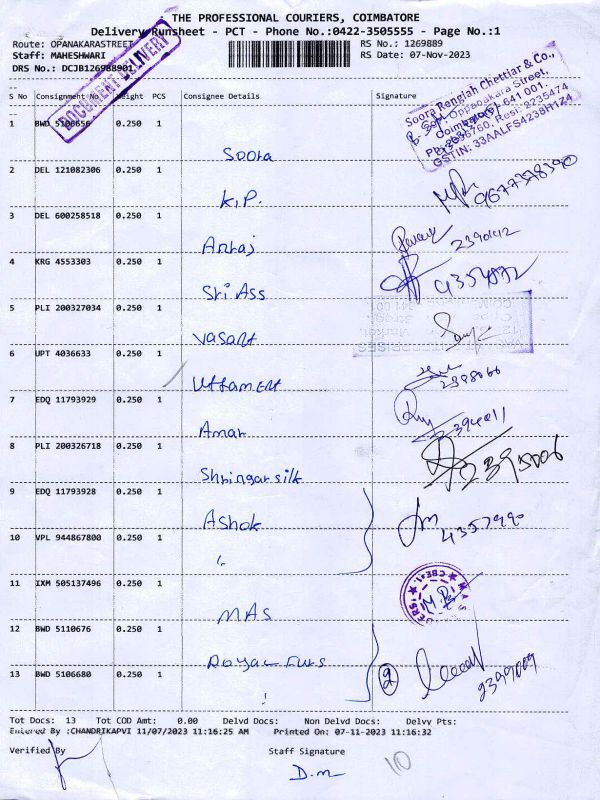 THE PROFESSIONAL COURIERS, COIMBATORE
Delivery Runsheet - PCT - Phone No.:0422-3505555 - Page No.:1
Route: OPANAKARASTREET RS No.: 1269889
Staff: MAHESHWARI RS Date: 07-Nov-2023
DRS No.: DCJB126988901
DOCUMENT DELIVERY
S No Consignment No Weight PCS Consignee Details Signature
Soora Rengiah Chettiar & Co.,
Oppanakara Street,
Coimbatore - 641 001.
Resi: 2235474
GSTIN: 33AALFS4238H1Z4
1 BWD 5106656 0.250 1
Soora
2 DEL 121082306 0.250 1
K.P. 9677378390
3 DEL 600258518 0.250 1
Anraj 2390142
4 KRG 4553303 0.250 1
Sri Ass 4354872
5 PLI 200327034 0.250 1
Vasant
6 UPT 4036633 0.250 1
Uttament 2398066
7 EDQ 11793929 0.250 1
Amar 2394011
8 PLI 200326718 0.250 1
Shringar silk 2395006
9 EDQ 11793928 0.250 1
Ashok 4357990
10 VPL 944867800 0.250 1
11 IXM 505137496 0.250 1
MAS
CBE-1
12 BWD 5110676 0.250 1
Royal Furs
13 BWD 5106680 0.250 1
2 2399009
Tot Docs: 13 Tot COD Amt: 0.00 Delvd Docs: Non Delvd Docs: Delvy Pts:
Entered By :CHANDRIKAPVI 11/07/2023 11:16:25 AM Printed On: 07-11-2023 11:16:32
Verified By Staff Signature
D.m 10